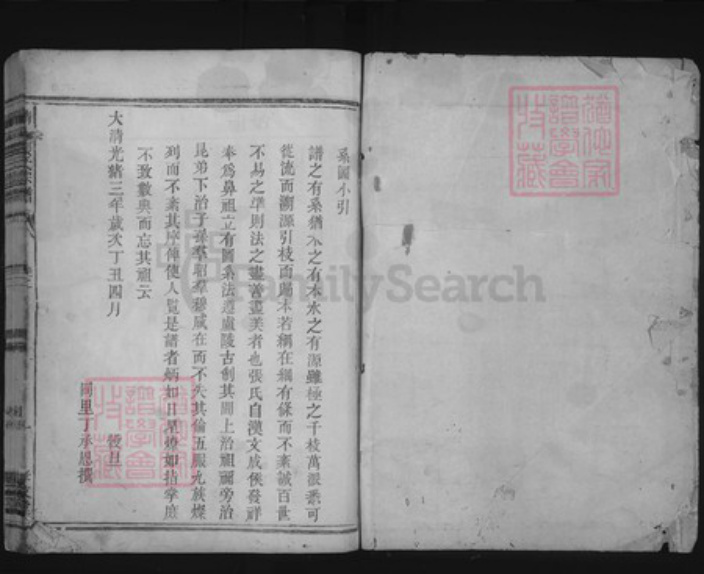 系圖小引
譜之有系猶木之有本水之有源雖極之千枝萬派悉可
從流而溯源引枝而歸本若綱在綱有條而不紊誠百世
不易之準則法之盡善盡美者也張氏自漢文成侯發祥
奉爲鼻祖立有圖系法遵盧陵古制其間上治祖禰旁治
昆弟下治子孫羣昭羣穆咸在而不失其倫五服九族燦
列而不紊其序俾後人覧是譜者炳如日星燎如指掌庶
不致數典而忘其祖云
大清光緒三年歲次丁丑四月 穀旦
同里丁承恩撰
FamilySearch
譜學會
藏